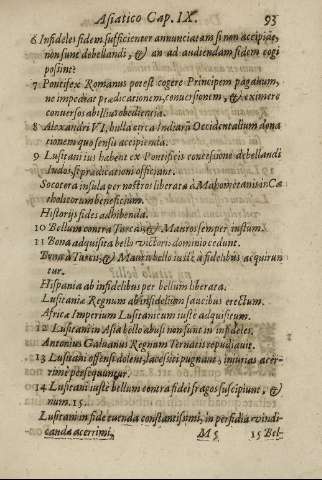 Asiatico Cap. IX. 93
6 Infideles fidem sufficienter annunciatam si non accipiāt,
non sunt debellandi, & an ad audiendam fidem cogi
possint?
7 Pontifex Romanus potest cogere Principem paganum,
ne impediat prædicationem, conversionem, & eximere
conversos ab illius obedientia.
8 Alexandri VI. bulla circa Indiarū Occidentalium dona
tionem quo sensu accipienda.
9 Lusitani ius habent ex Pontificis concessione debellandi
Indos, si prædicationi officiant.
Socotora insula per nostros liberata à Mahometanis in Ca
tholicorum beneficium.
Historijs fides adhibenda.
10 Bellum contra Turcas, & Mauros semper iustum.
11 Bona adquisita bello victoris dominio cedunt.
Bona à Turcis, & Mauris bello iustè à fidelibus acquirun
tur.
Hispania ab infidelibus per bellum liberata.
Lusitaniæ Regnum ab infidelium faucibus erectum.
Africæ Imperium Lusitanicum iustè adquisitum.
12 Lusitani in Asia bello abusi non sunt in infideles.
Antonius Galuanus Regnum Ternatis repudiavit.
13 Lusitani offensi dolent, lacessiti pugnant, iniurias acer-
rimè persequuntur.
14 Lusitani iustè bellum contra fidei fragos suscipiunt, &
num. 15.
Lusitani in fide tuenda constantissimi, in perfidia vindi-
canda acerrimi.
M 5 15 Bel-